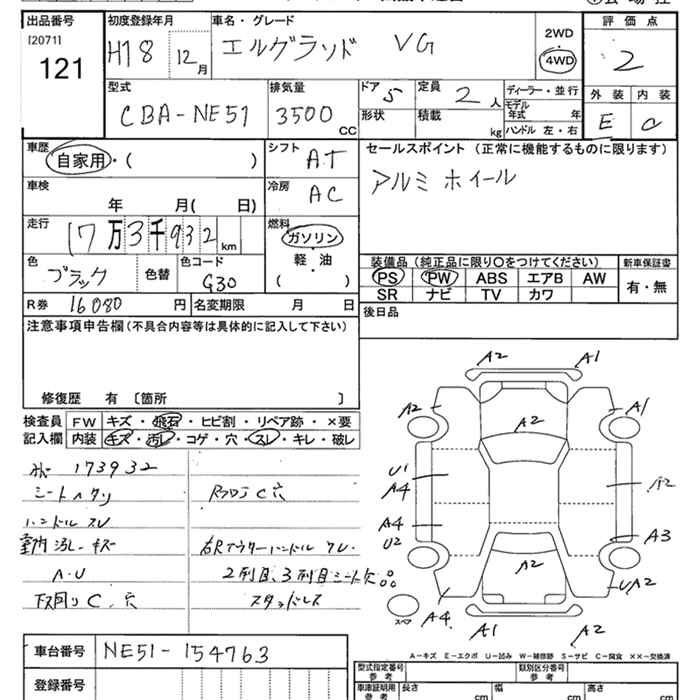 出品番号 初度登録年月 車名・グレード 評価点
[2071]
121
H18 12月 エルグランド VG 2WD
4WD
2
型式 排気量 ドア 定員 ディーラー・並行 外装 内装
CBA-NE51 3500cc 5 2人 モデル年式 年 E C
形状 積載 kg ハンドル 左・右
車歴 シフト セールスポイント (正常に機能するものに限ります)
自家用・( ) AT アルミホイール
車検 冷房
年 月( 日) AC
走行 燃料
17万3千932km ガソリン
軽油
・
( )
装備品 (純正品に限り○をつけてください) 新車保証書
色 色替 色コード PS PW ABS エアB AW 有・無
ブラック G30 SR ナビ TV カワ
R券 16080円 名変期限 月 日 後日品
注意事項申告欄(不具合内容等は具体的に記入して下さい)
修復歴 有 〔箇所 〕
検査員 FW キズ・飛石・ヒビ割・リペア跡・×要
記入欄 内装 キズ・汚レ・コゲ・穴・スレ・キレ・破レ
173932
シートヘタリ C穴
ハンドルスレ
室内汚レ・キズ 右Rアウターハンドル ワレ
A・U 2列目、3列目シート欠品
下回り C、穴 スタッドレス
A2 A1
A2 A2 A1
U1
A4 A2
A4
U2 A3
A2 UA2
スペア A4
A1 A2
A-キズ E-エクボ U-凹み W-補修跡 S-サビ C-腐食 ××-交換済
車台番号 NE51-154763
登録番号
型式指定番号 参考 類別区分番号 参考
車庫証明用 参考 長さ cm 幅 cm 高さ cm